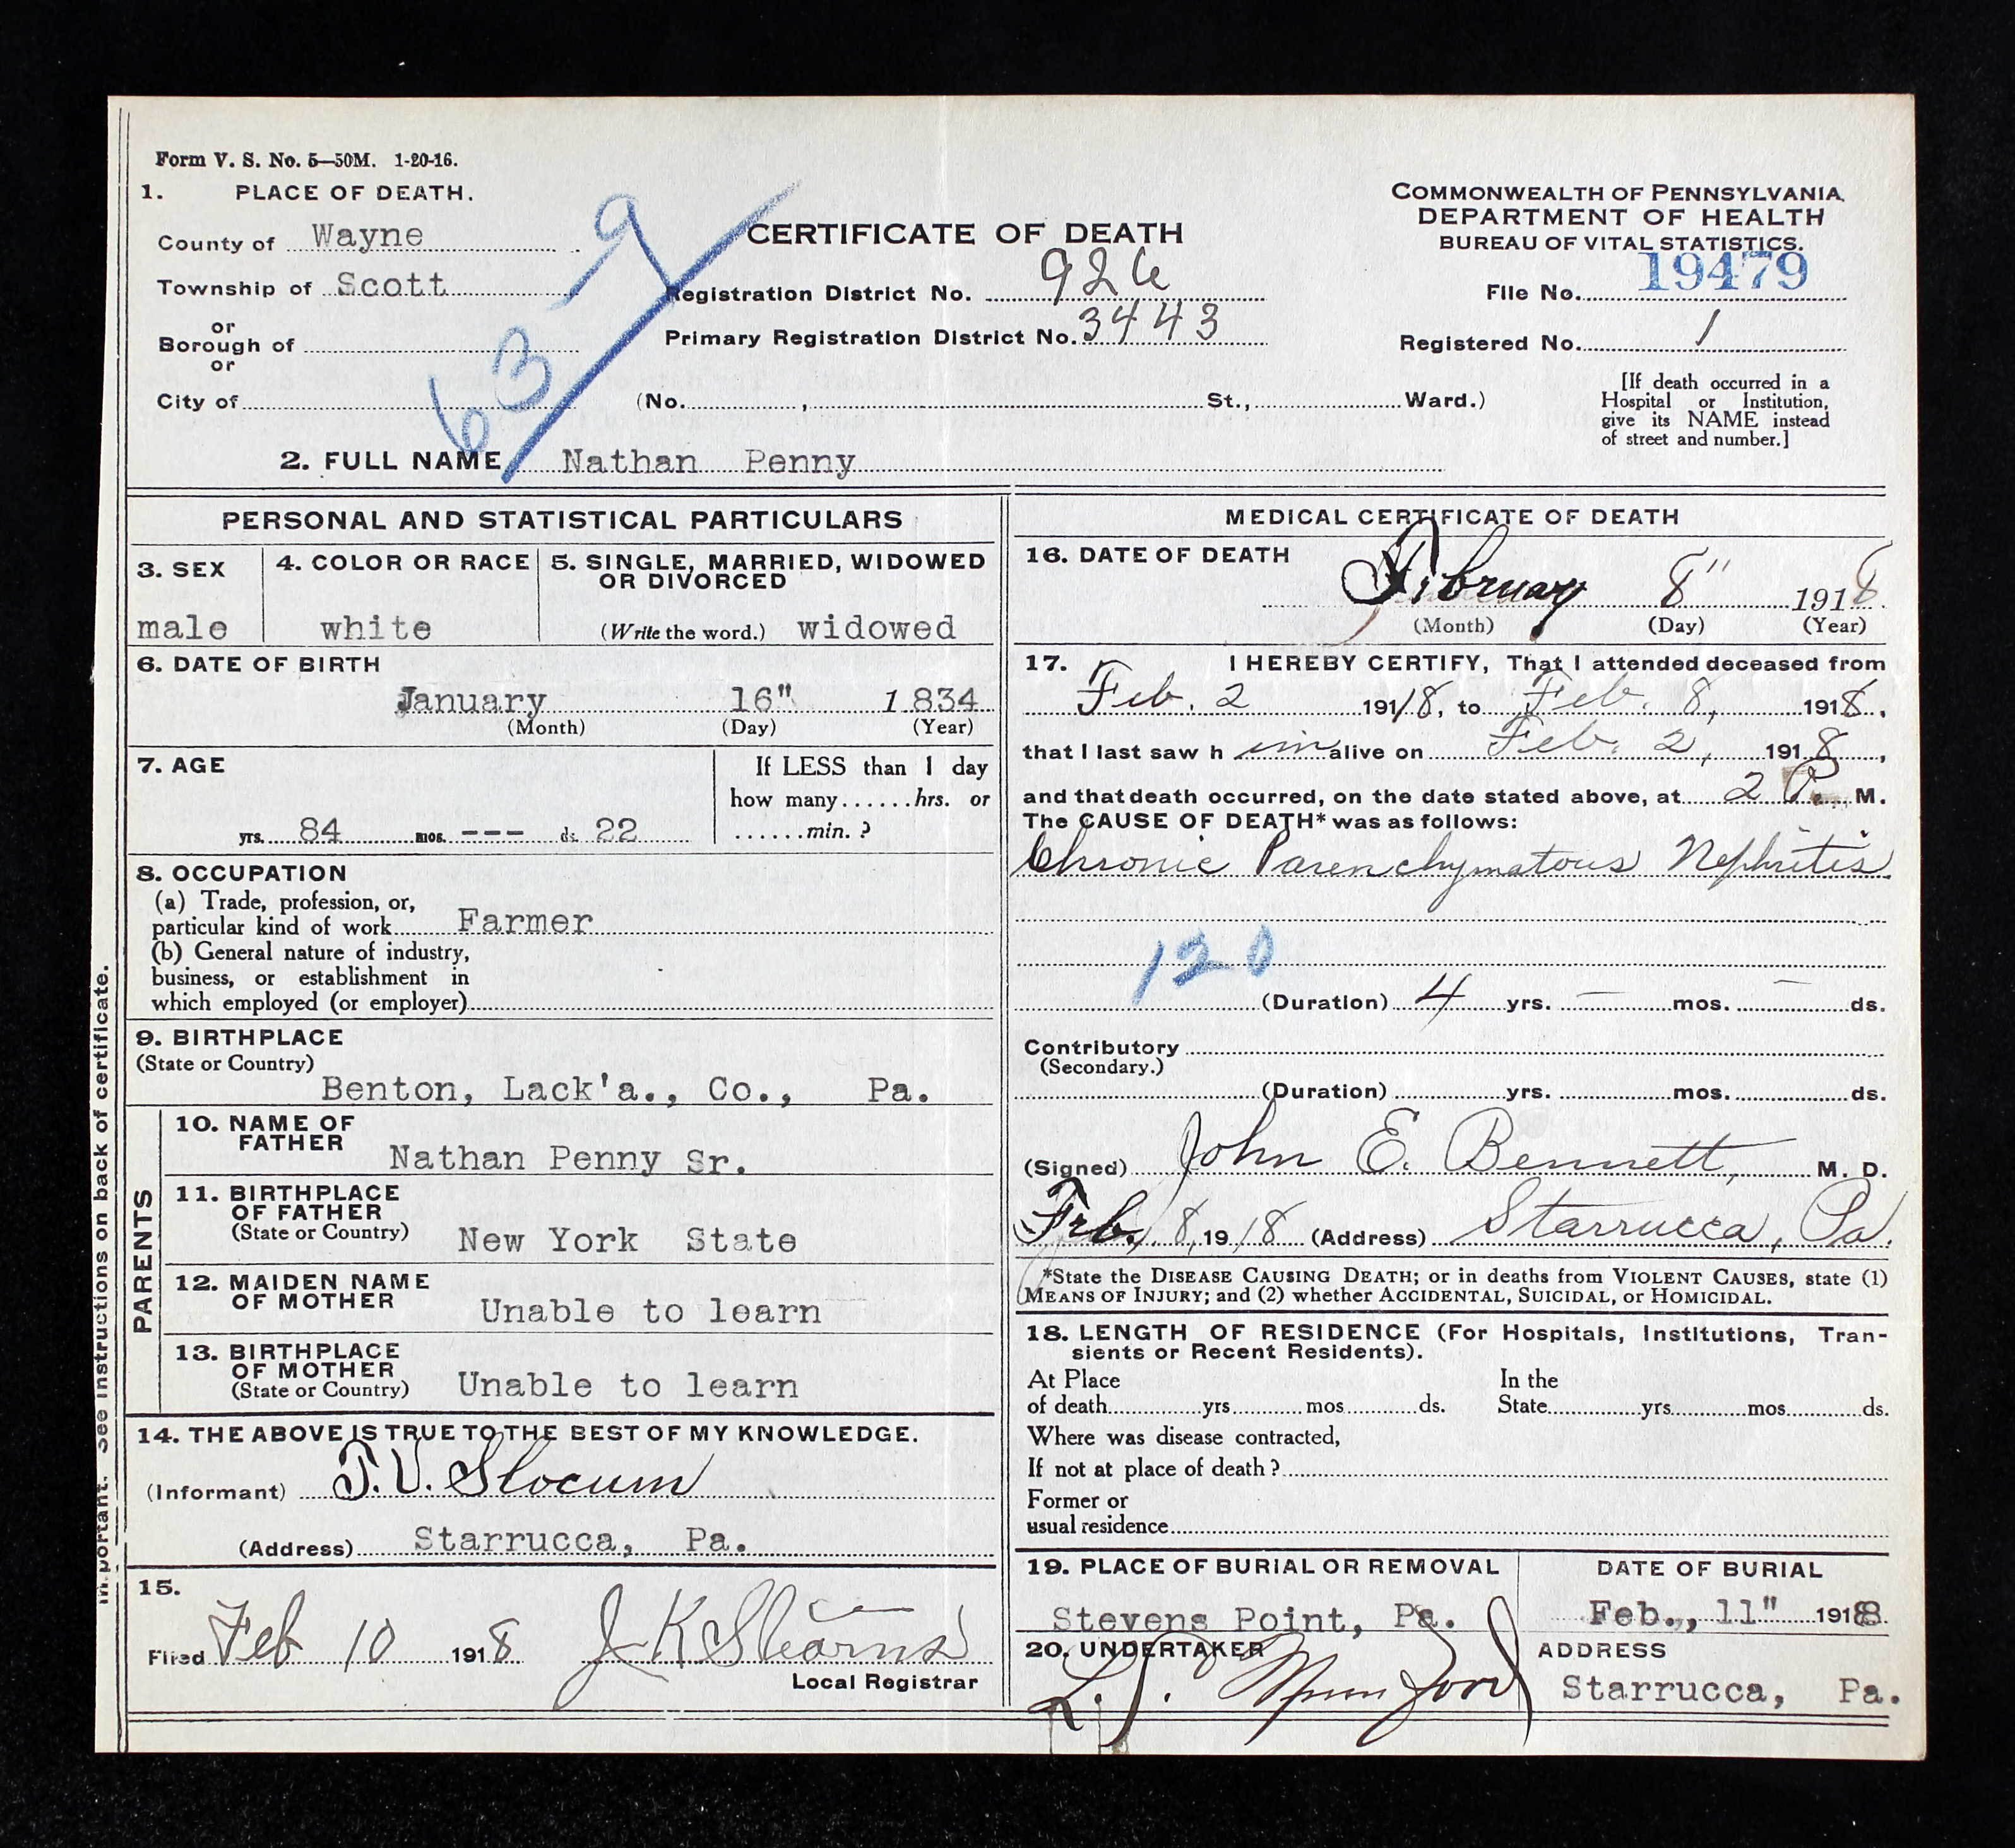 Form V. S. No. 5—50M. 1-20-16.
1. PLACE OF DEATH.
County of Wayne
Township of Scott
or
Borough of
or
City of
63-9
CERTIFICATE OF DEATH
Registration District No. 926
Primary Registration District No. 3443
(No. , St., Ward.)
COMMONWEALTH OF PENNSYLVANIA.
DEPARTMENT OF HEALTH
BUREAU OF VITAL STATISTICS.
File No. 19479
Registered No. 1
[If death occurred in a
Hospital or Institution,
give its NAME instead
of street and number.]
2. FULL NAME Nathan Penny
PERSONAL AND STATISTICAL PARTICULARS
3. SEX
male
4. COLOR OR RACE
white
5. SINGLE, MARRIED, WIDOWED
OR DIVORCED
(Write the word.) widowed
6. DATE OF BIRTH
January 16" 1834
(Month) (Day) (Year)
7. AGE
yrs. 84 mos. --- ds. 22
If LESS than 1 day
how many......hrs. or
......min. ?
8. OCCUPATION
(a) Trade, profession, or,
particular kind of work Farmer
(b) General nature of industry,
business, or establishment in
which employed (or employer)
9. BIRTHPLACE
(State or Country)
Benton, Lack'a., Co., Pa.
PARENTS
10. NAME OF
FATHER
Nathan Penny Sr.
11. BIRTHPLACE
OF FATHER
(State or Country) New York State
12. MAIDEN NAME
OF MOTHER
Unable to learn
13. BIRTHPLACE
OF MOTHER
(State or Country) Unable to learn
14. THE ABOVE IS TRUE TO THE BEST OF MY KNOWLEDGE.
(Informant) T.V. Slocum
(Address) Starrucca, Pa.
15.
Filed Feb 10 1918 J K Stearns
Local Registrar
MEDICAL CERTIFICATE OF DEATH
16. DATE OF DEATH
February 8" 1918
(Month) (Day) (Year)
17. I HEREBY CERTIFY, That I attended deceased from
Feb. 2 1918, to Feb. 8, 1918,
that I last saw h im alive on Feb. 2, 1918,
and that death occurred, on the date stated above, at 2 P. M.
The CAUSE OF DEATH* was as follows:
Chronic Parenchymatous Nephritis.
120
(Duration) 4 yrs. — mos. — ds.
Contributory
(Secondary.)
(Duration) yrs. mos. ds.
(Signed) John E. Bennett, M. D.
Feb. 8, 1918 (Address) Starrucca, Pa.
*State the DISEASE CAUSING DEATH; or in deaths from VIOLENT CAUSES, state (1)
MEANS OF INJURY; and (2) whether ACCIDENTAL, SUICIDAL, or HOMICIDAL.
18. LENGTH OF RESIDENCE (For Hospitals, Institutions, Tran-
sients or Recent Residents).
At Place
of death yrs mos ds.
In the
State yrs mos ds.
Where was disease contracted,
If not at place of death ?
Former or
usual residence
19. PLACE OF BURIAL OR REMOVAL
Stevens Point, Pa.
DATE OF BURIAL
Feb., 11" 1918
20. UNDERTAKER
Mumford
ADDRESS
Starrucca, Pa.
important. See instructions on back of certificate.